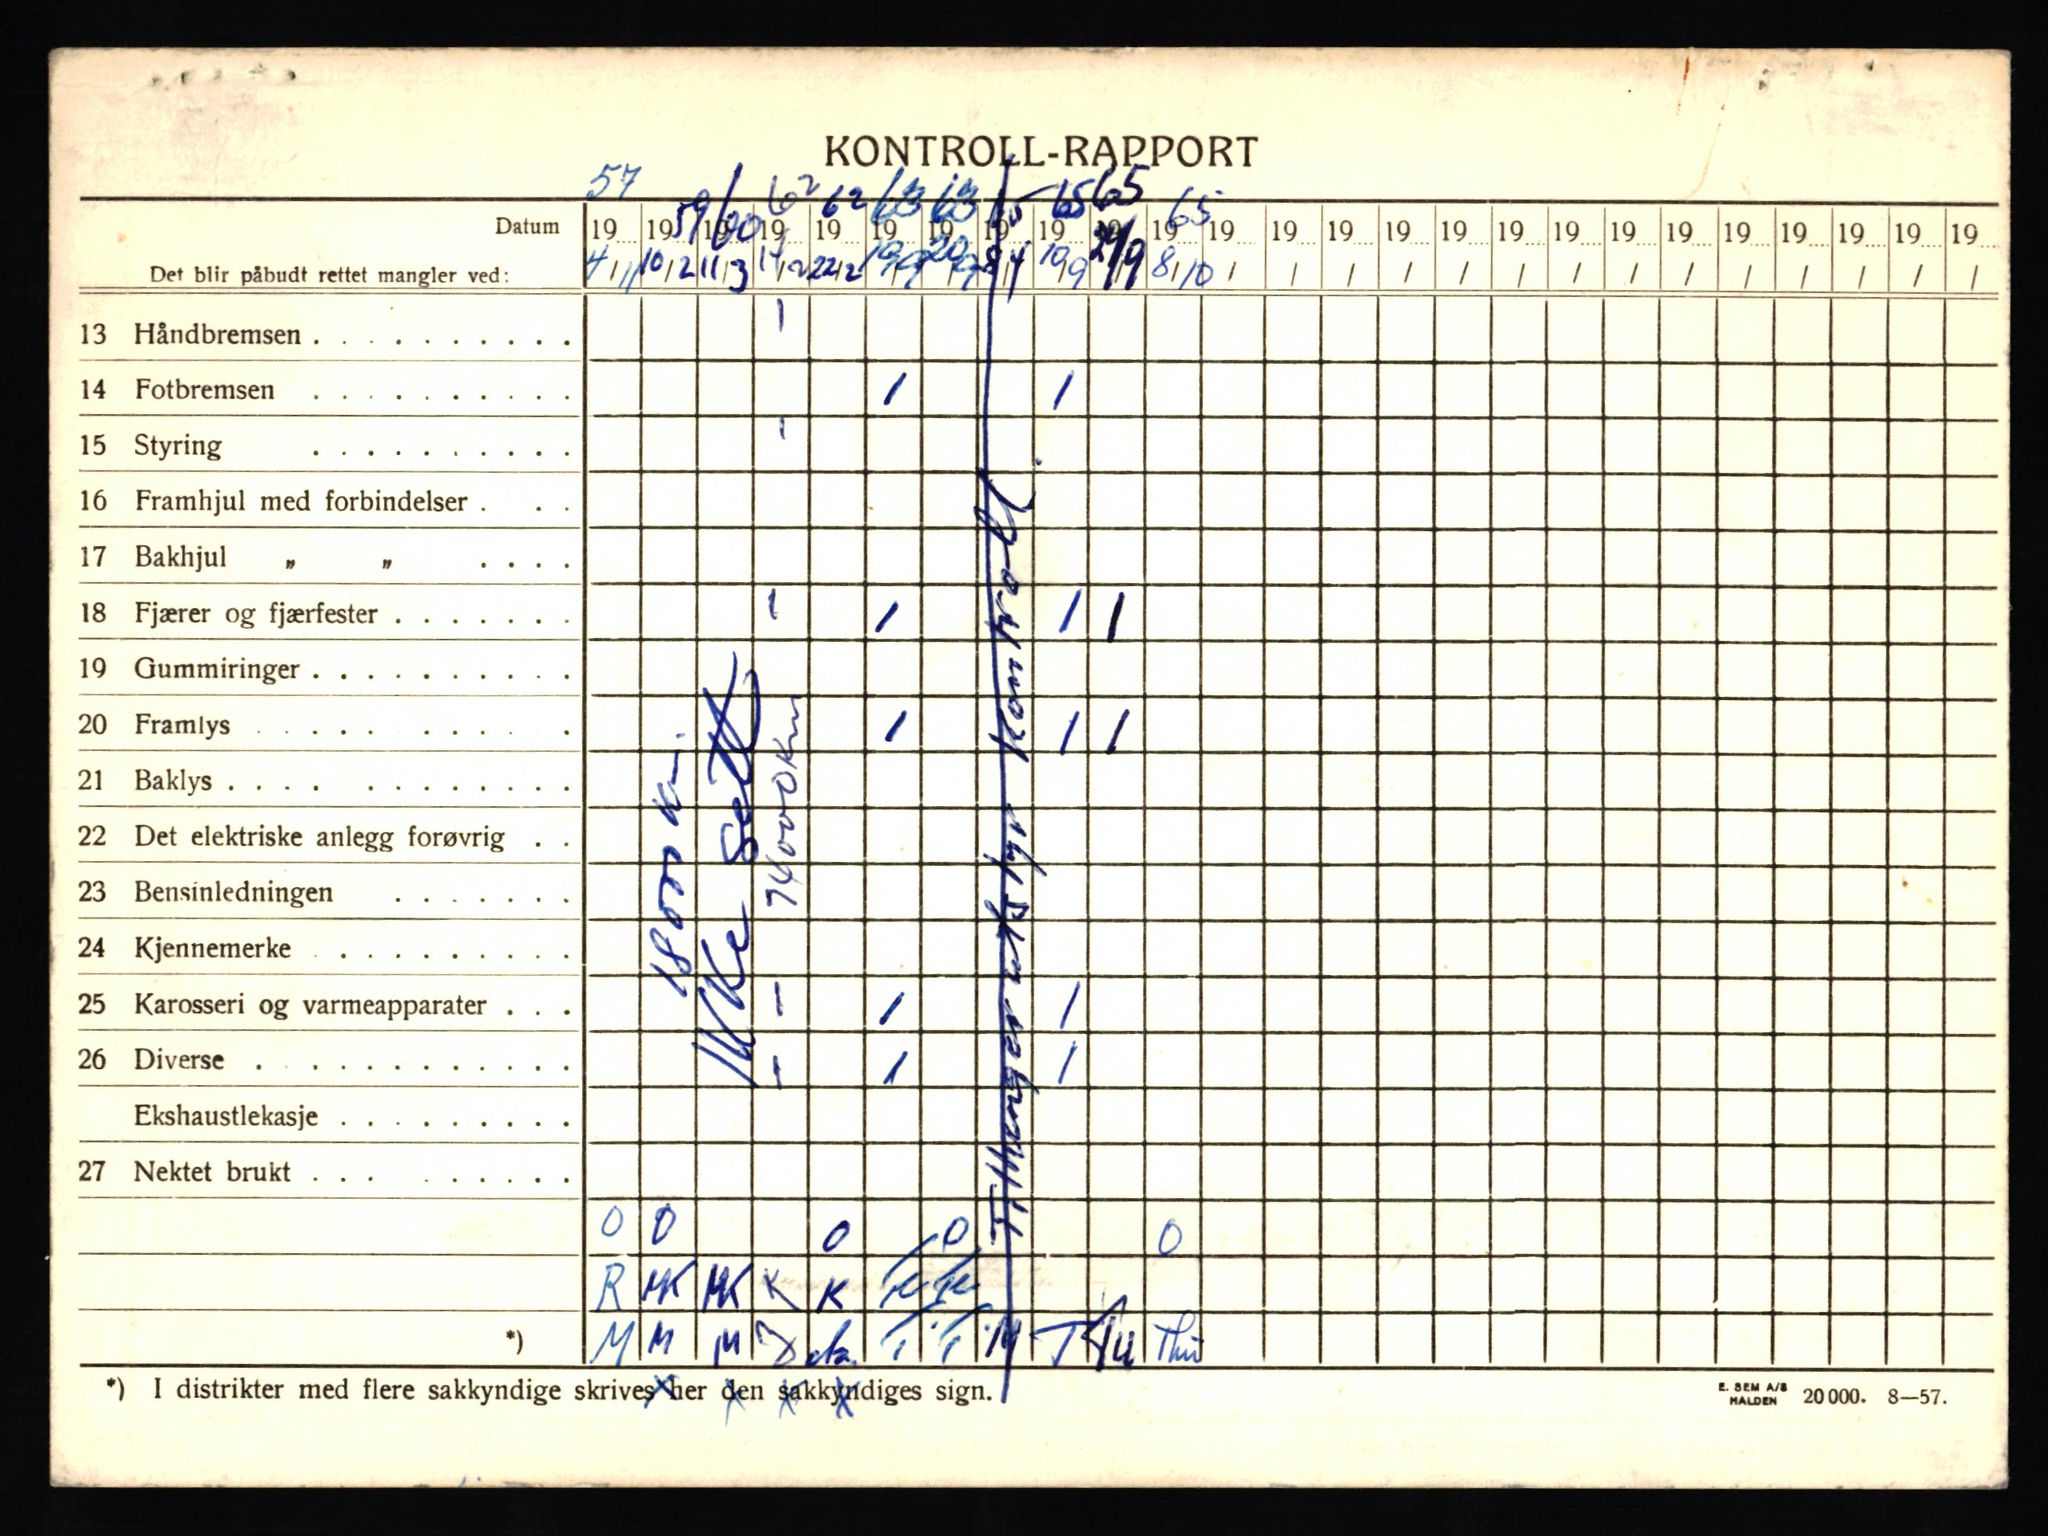 KONTROLL-RAPPORT
57 59 60 62 62 63 63 65 65 65 65
Datum 19 19 19 19 19 19 19 19 19 19 19 19 19 19 19 19 19 19 19 19 19 19 19 19 19
Det blir påbudt rettet mangler ved: 4/11 10/2 11/3 14/2 22/2 19/9 20/9 8/4 10/9 24/9 8/10 / / / / / / / / / / / / / /
13 Håndbremsen . . . . . . . . . . 1
14 Fotbremsen . . . . . . . . . . 1 1
15 Styring . . . . . . . . . . 1
16 Framhjul med forbindelser . . .
17 Bakhjul „ „ . . . .
18 Fjærer og fjærfester . . . . . . . 1 1 1 1
19 Gummiringer . . . . . . . . . .
20 Framlys . . . . . . . . . . 1 1 1
21 Baklys . . . . . . . . . . .
22 Det elektriske anlegg forøvrig . .
23 Bensinledningen . . . . . . .
24 Kjennemerke . . . . . . . . .
25 Karosseri og varmeapparater . . . 1 1 1
26 Diverse . . . . . . . . . . 1 1 1
Ekshaustlekasje . . . . . . . . .
27 Nektet brukt . . . . . . . . .
18000 km.
Ikke sett
74000 km
0 0 0 0 0
R MK MK K K
*) M M M T T M T Thu
*) I distrikter med flere sakkyndige skrives her den sakkyndiges sign.
E. SEM A/S
HALDEN 20 000. 8—57.